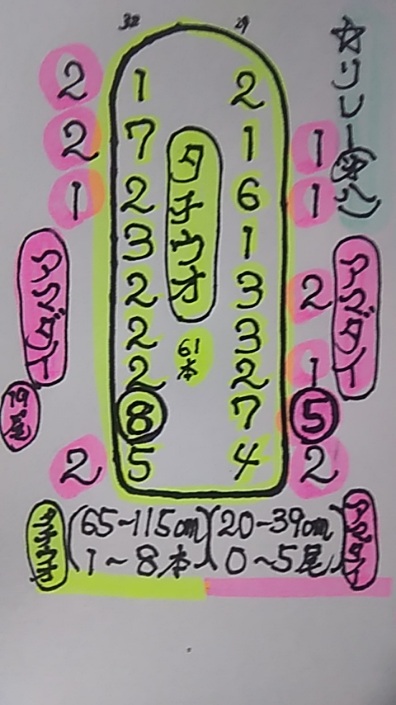 ☆リレー
32 29
2 1 2
2 7 1 1
1 2 6 1
3 1
2 3 2
2 3
2 2 1
8 7 5
2 5 4 2
タチウオ
61本
アマダイ
アマダイ
19尾
タチウオ (65~115cm)(20~39cm) アマダイ
1~8本 0~5尾